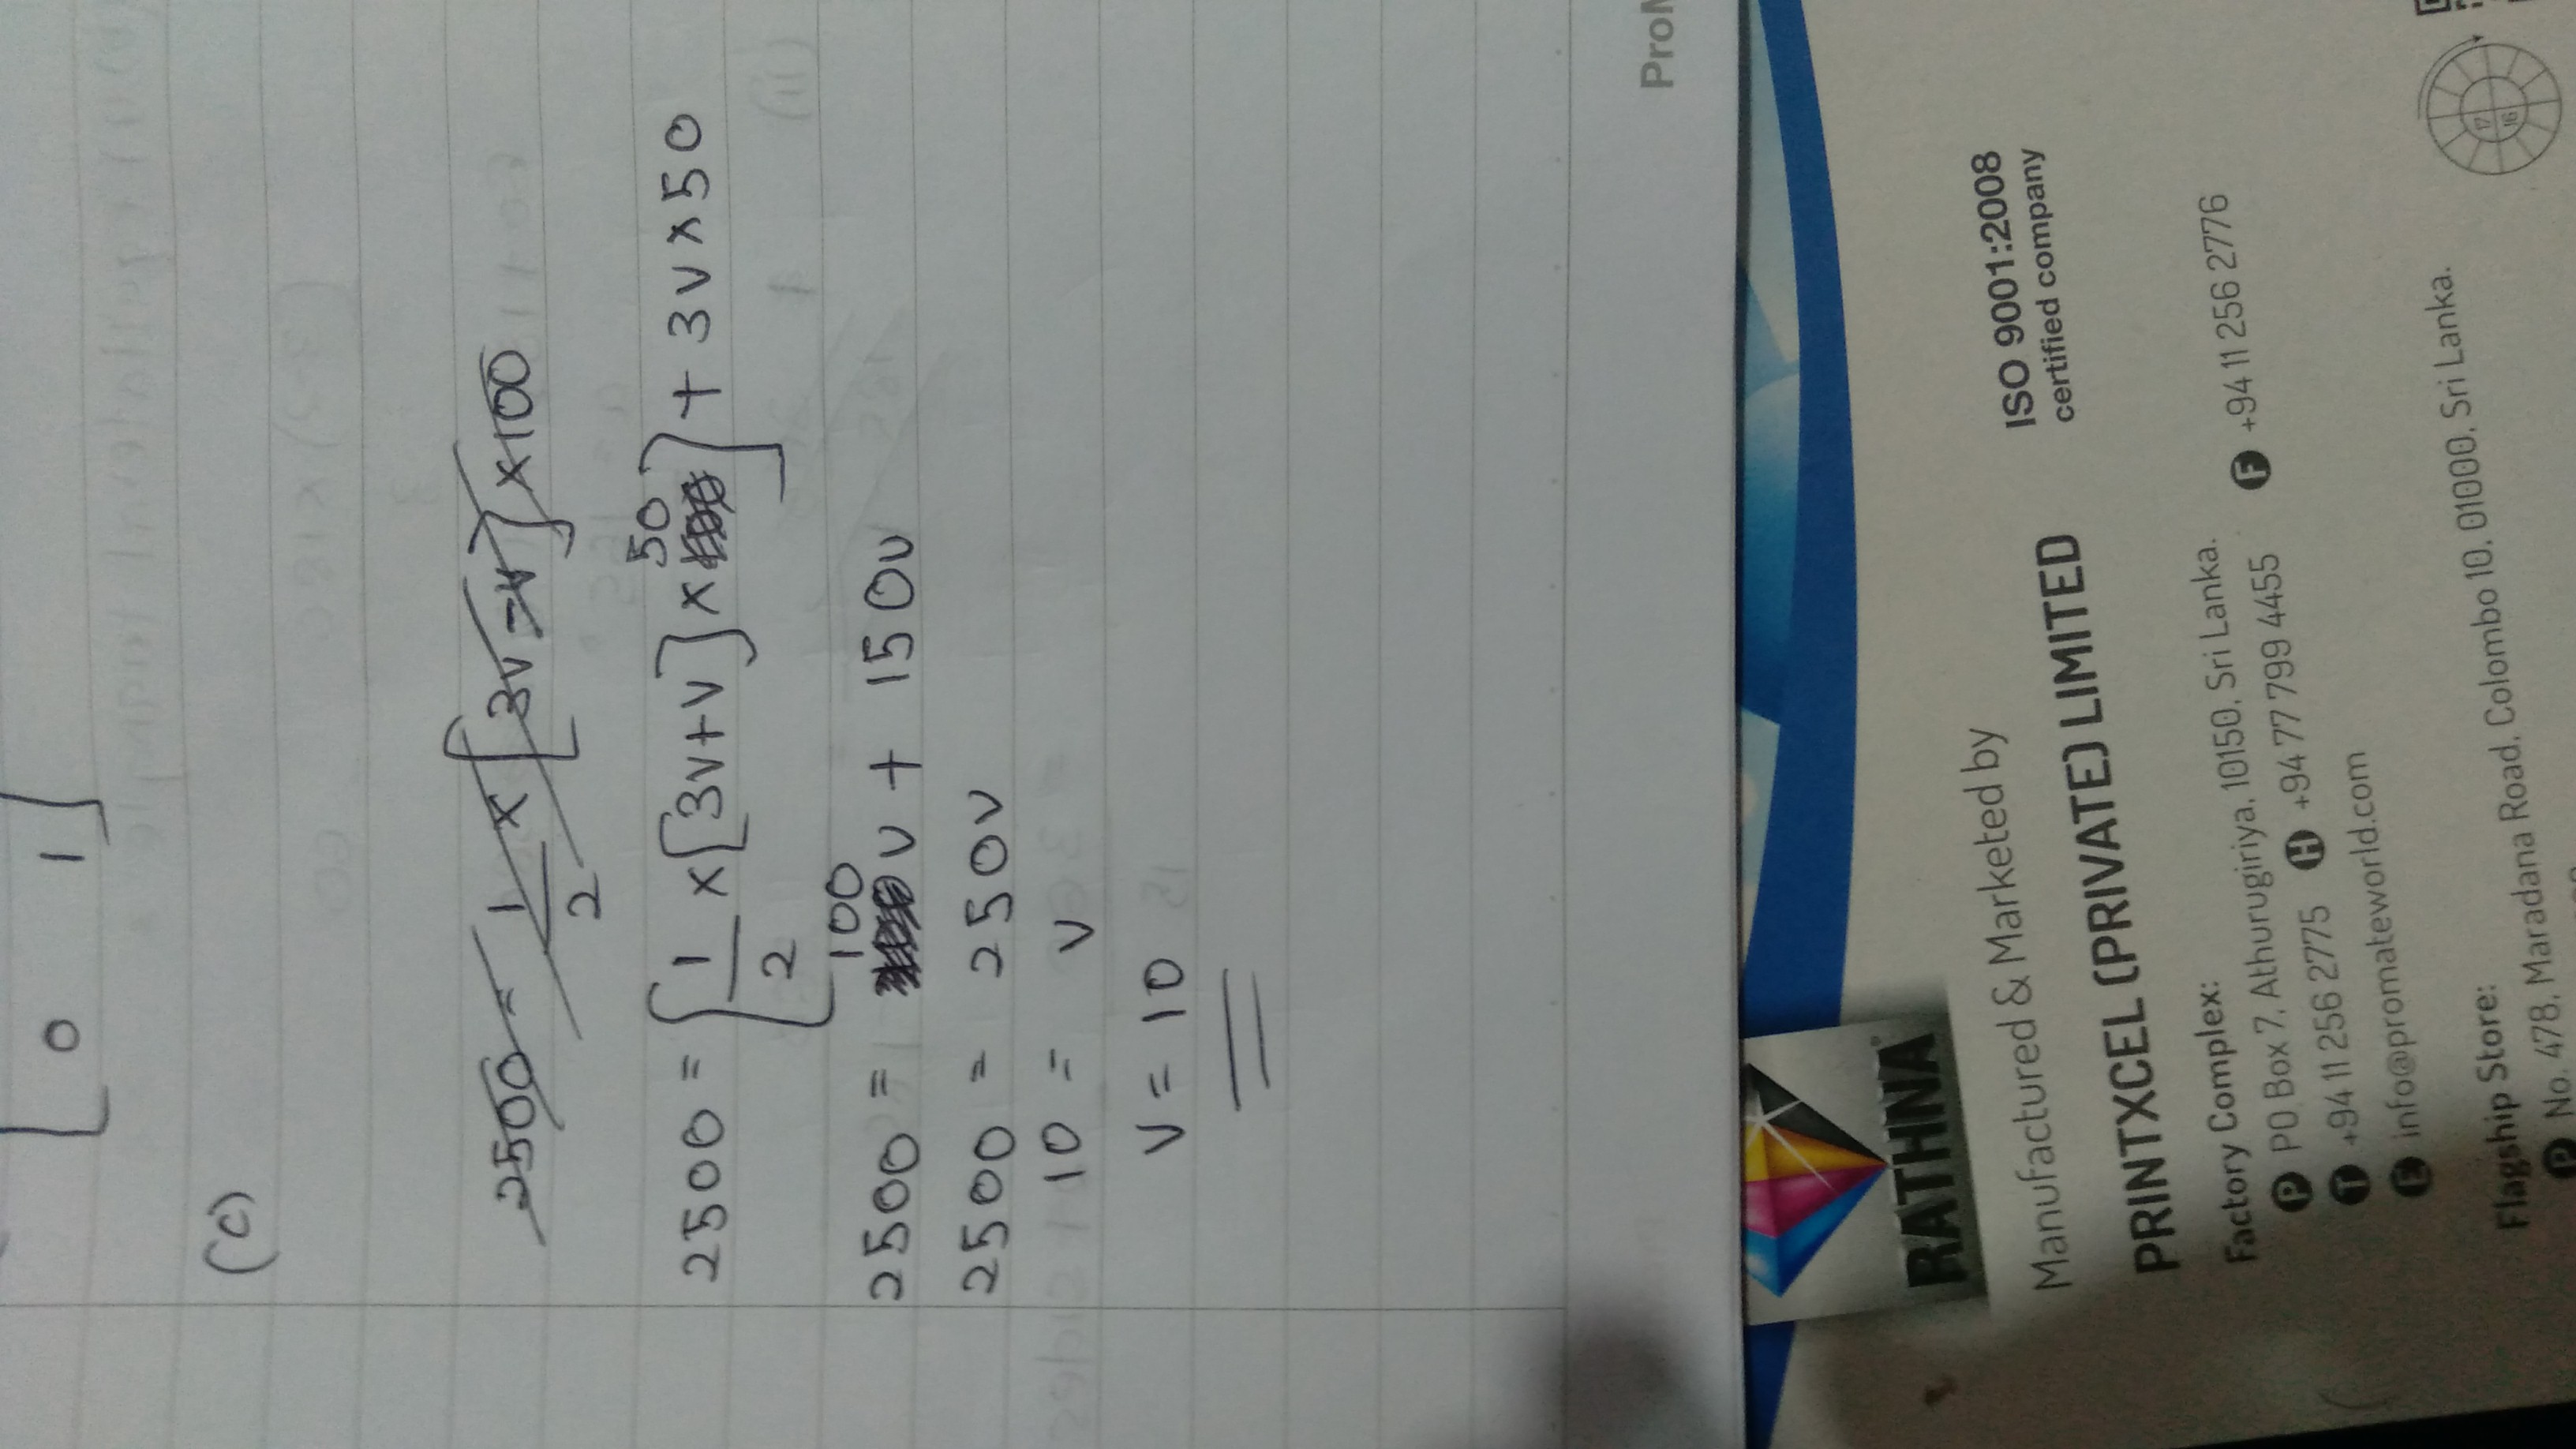 0 1
(c)
2500 = 1/2 × [3v-v] × 100
2500 = [1/2 × [3v+v] × 50] + 3v × 50
2500 = 100v + 150v
2500 = 250v
10 = v
v = 10
ProM
RATHNA
Manufactured & Marketed by
ISO 9001:2008
certified company
PRINTXCEL (PRIVATE) LIMITED
Factory Complex:
P PO Box 7, Athurugiriya, 10150, Sri Lanka.
T +94 11 256 2775 H +94 77 799 4455 F +94 11 256 2776
E info@promateworld.com
Flagship Store:
P No. 478, Maradana Road, Colombo 10, 01000, Sri Lanka.
17
16